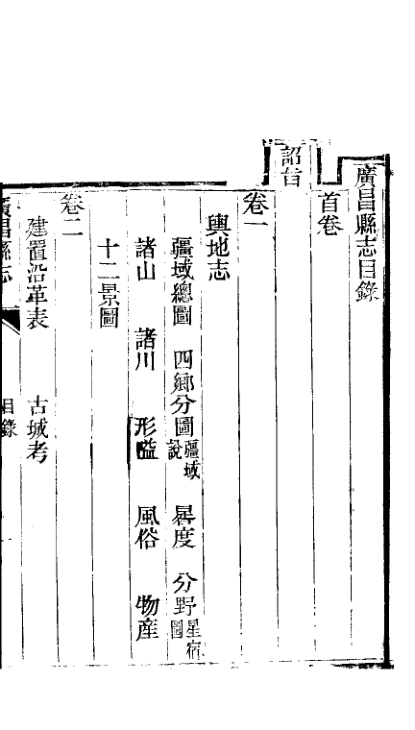 廣昌縣志目錄
首卷
詔旨
卷一
輿地志
疆域總圖 四鄉分圖 疆域說 晷度 分野 星宿圖
諸山 諸川 形勝 風俗 物產
十二景圖
卷二
建置沿革表 古城考
廣昌縣志 目錄